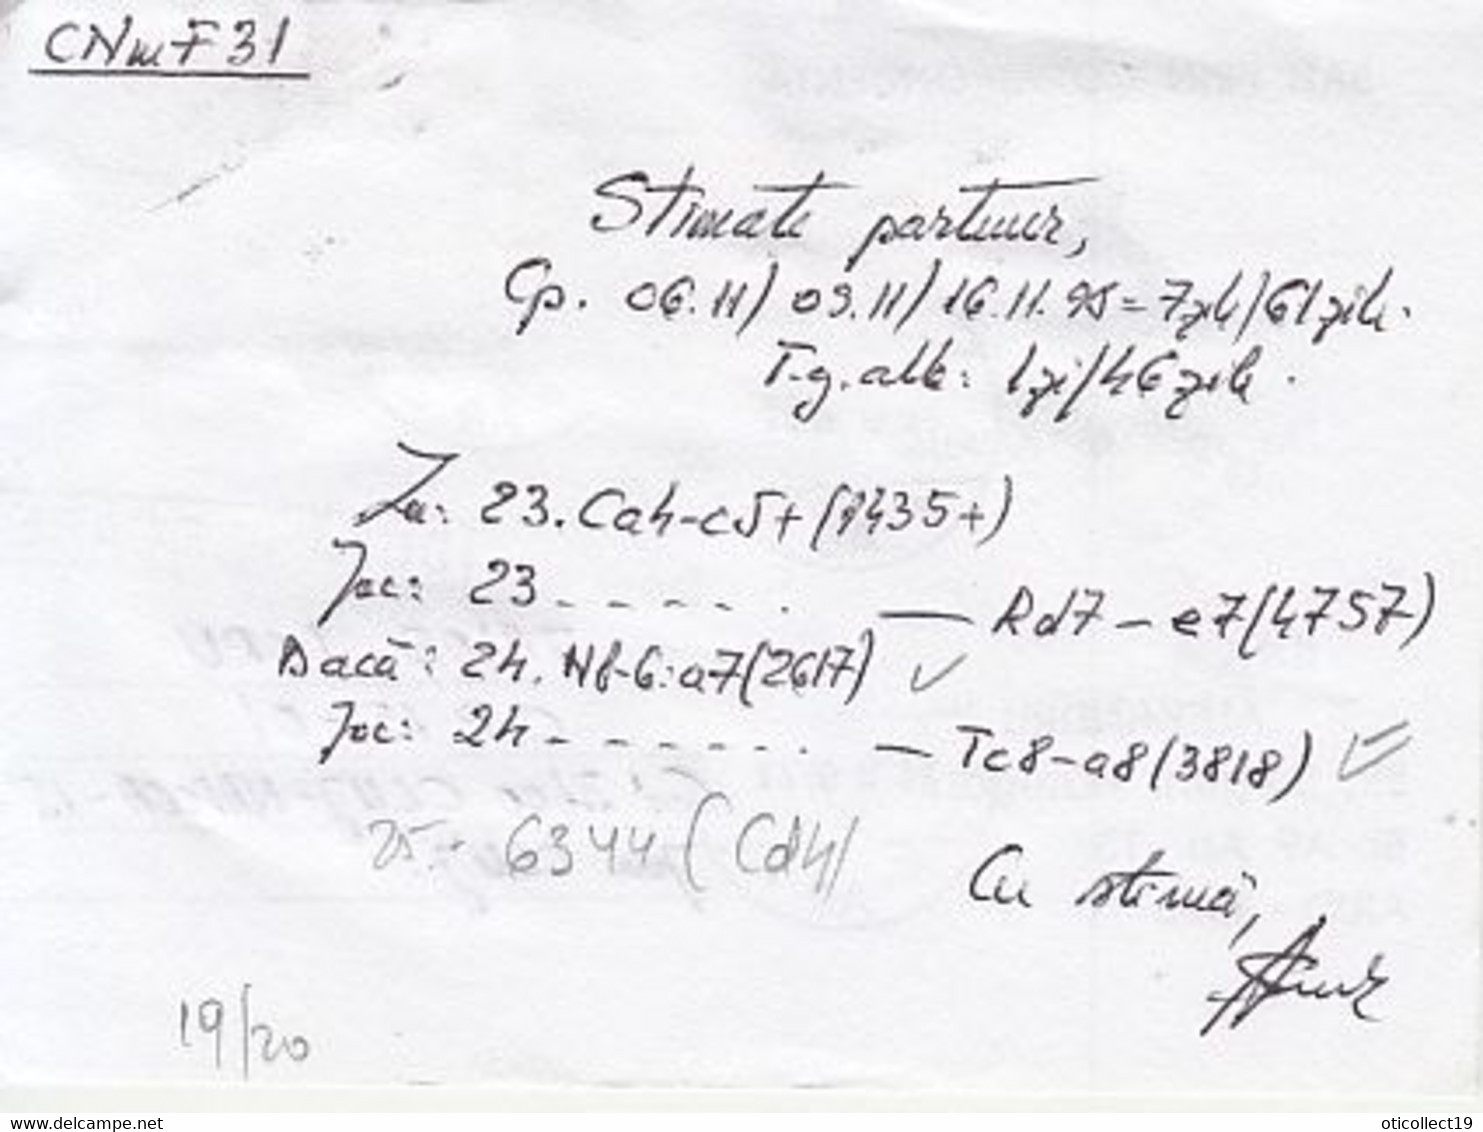 CNmF31
Stimate partener,
Cp. 06.11/ 09.11/ 16.11.95 = 7zile/61zile.
T.g.alb: 1zi/46zile.
La: 23. Ca4-c5+(1435+)
Joc: 23 - - - - - . — Rd7-e7(4757)
Dacă: 24. Nb6:a7(2617) ✓
Joc: 24 - - - - - - . — Tc8-a8(3818)
25.- 6344 (Cd4)
Cu stimă,
19/20
oticollect19
delcampe.net